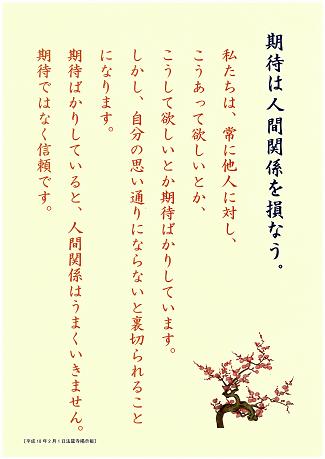 期待は人間関係を損なう。
私たちは、常に他人に対し、
こうあって欲しいとか、
こうして欲しいとか期待ばかりしています。
しかし、自分の思い通りにならないと裏切られること
になります。
期待ばかりしていると、人間関係はうまくいきません。
期待ではなく信頼です。